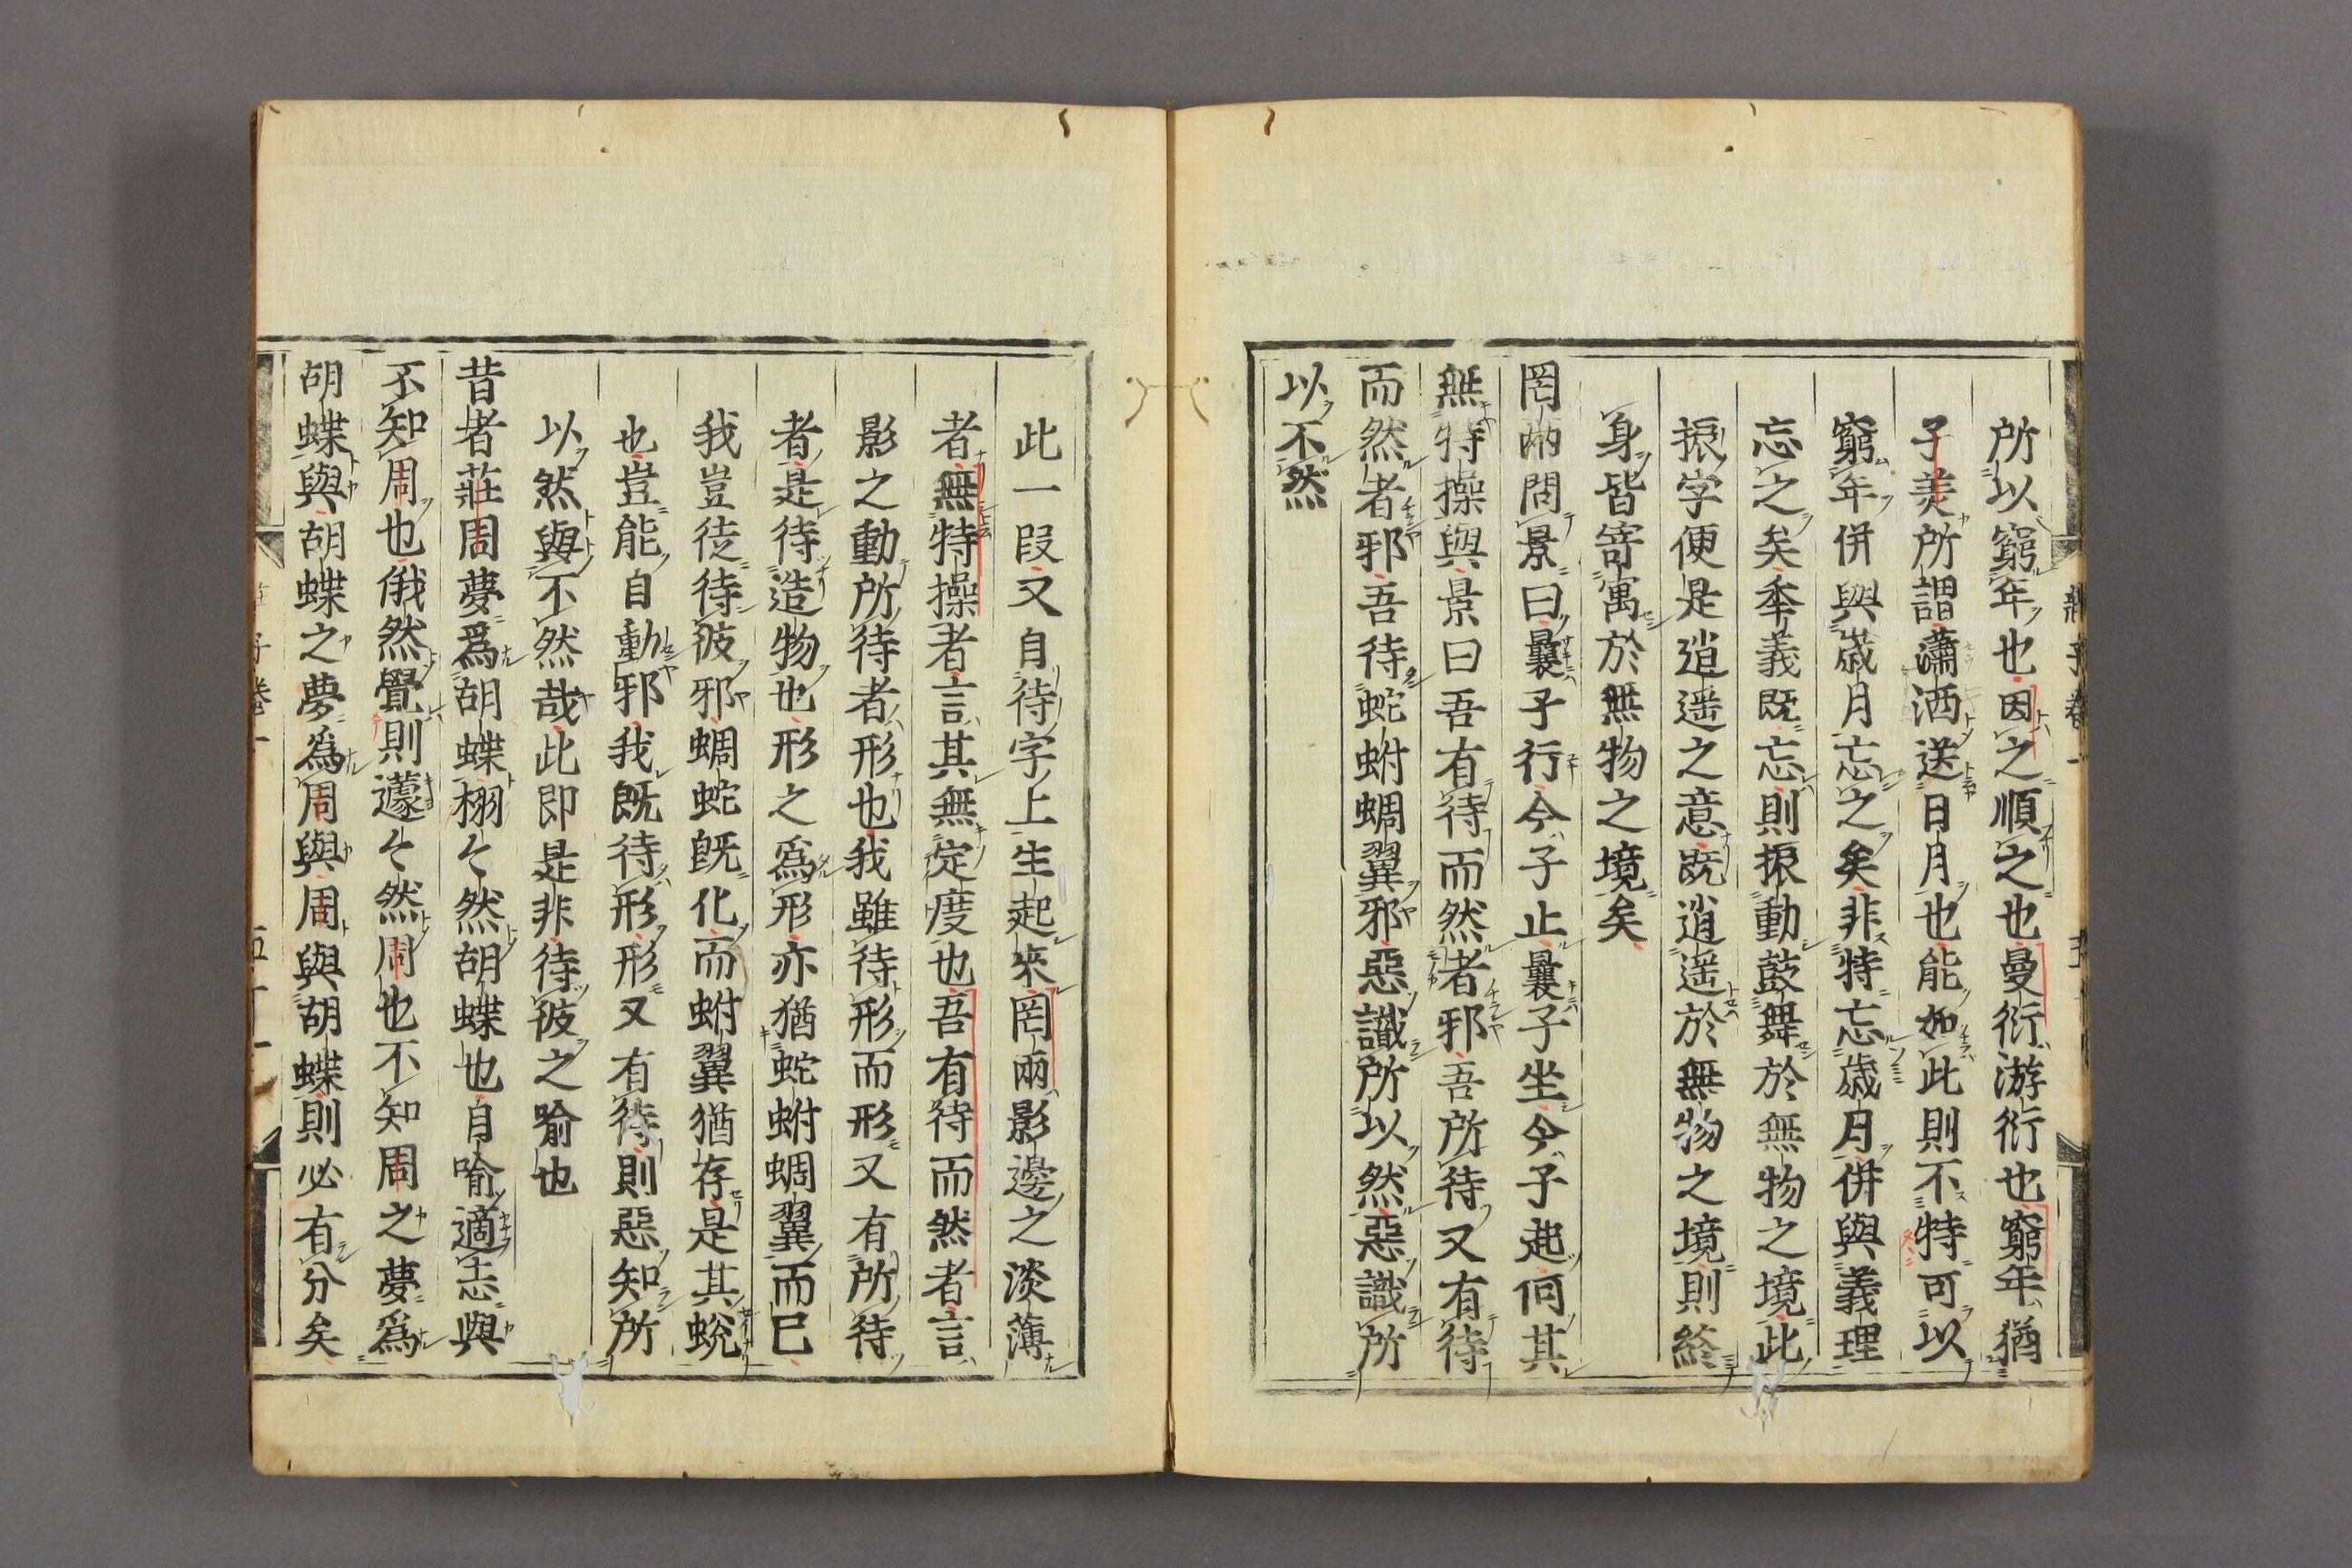 所以窮年也因之順之也曼衍游衍也窮年猶
子美所謂瀟洒送日月也能如此則不特可以
窮年併與歳月忘之矣非特忘歳月併與義理
忘之矣年義既忘則振動鼓舞於無物之境此
振字便是逍遥之意既逍遥於無物之境則終
身皆寄寓於無物之境矣
罔兩問景曰曩子行今子止曩子坐今子起何其
無特操與景曰吾有待而然者邪吾所待又有待
而然者邪吾待蛇蚹蜩翼邪惡識所以然惡識所
以不然
此一段又自待字上生起來罔兩影邊之淡薄
者無特操者言其無定度也吾有待而然者言
影之動所待者形也我雖待形而形又有所待
者是待造物也形之為形亦猶蛇蚹蜩翼而已
我豈徒待彼邪蜩蛇既化而蚹翼猶存是其蛻
也豈能自動邪我既待形形又有待則惡知所
以然與不然哉此即是非待彼之喻也
昔者莊周夢爲胡蝶栩〻然胡蝶也自喻適志與
不知周也俄然覺則蘧〻然周也不知周之夢爲
胡蝶與胡蝶之夢爲周與周與胡蝶則必有分矣